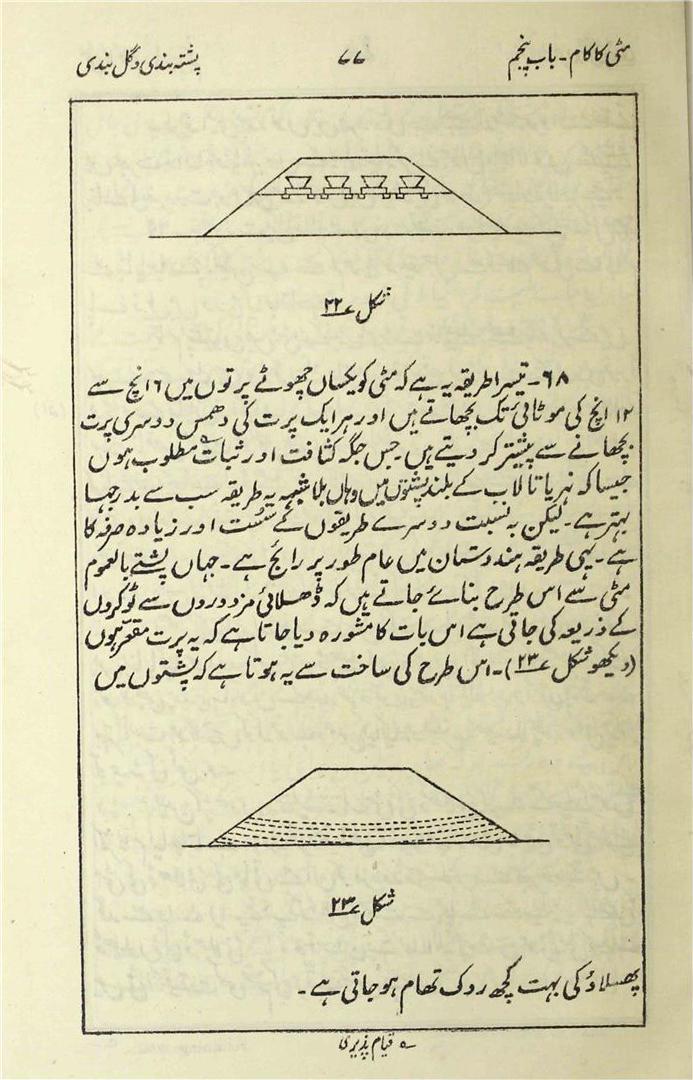 مٹی کا کام - باب پنجم
۷۷
پشتہ بندی و گل بندی
شکل ؏ ۲۲
۶۸ - تیسرا طریقہ یہ ہے کہ مٹی کو یکساں چھوٹے پرتوں میں ۶ انچ سے
۱۲ انچ کی موٹائی تک بچھاتے ہیں اور ہر ایک پرت کی دھمس دوسری پرت
بچھانے سے پیشتر کر دیتے ہیں - جس جگہ کثافت اور ثبات ؎ مطلوب ہوں
جیسا کہ نہر یا تالاب کے بلند پشتوں میں وہاں بلا شبہہ یہ طریقہ سب سے بدرجہا
بہتر ہے - لیکن بہ نسبت دوسرے طریقوں کے سُست اور زیادہ صرفہ کا
ہے - یہی طریقہ ہندوستان میں عام طور پر رائج ہے - جہاں پشتے بالعموم
مٹی سے اس طرح بنائے جاتے ہیں کہ ڈھلائی مزدوروں سے ٹوکروں
کے ذریعہ کی جاتی ہے اس بات کا مشورہ دیا جاتا ہے کہ یہ پرت مقعر ہوں
(دیکھو شکل ؏ ۲۳) - اس طرح کی ساخت سے یہ ہوتا ہے کہ پشتوں میں
شکل ؏ ۲۳
پھسلاؤ کی بہت کچھ روک تھام ہو جاتی ہے -
؎ قیام پذیری